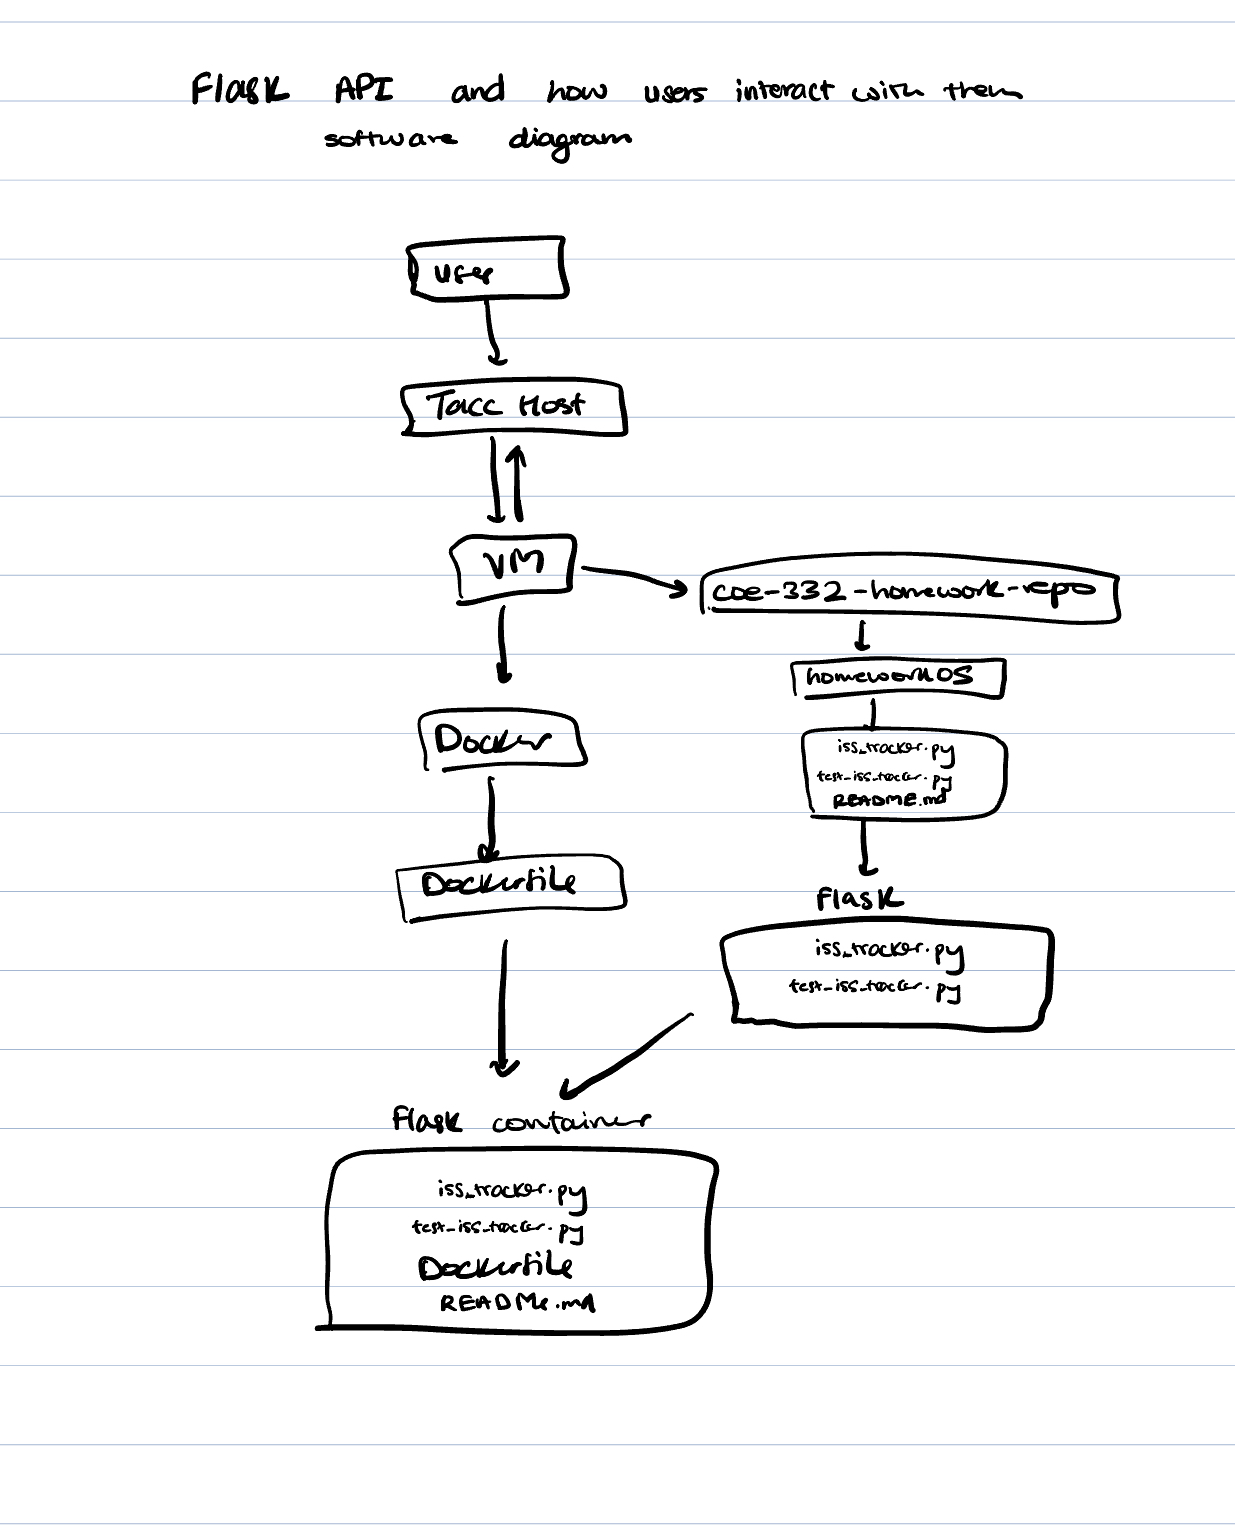 Flask API and how users interact with them
software diagram
user
Tacc Host
VM
coe-332-homework-repo
homework05
iss_tracker.py
test_iss_tracker.py
README.md
Docker
Dockerfile
Flask
iss_tracker.py
test_iss_tracker.py
Flask container
iss_tracker.py
test_iss_tracker.py
Dockerfile
README.md